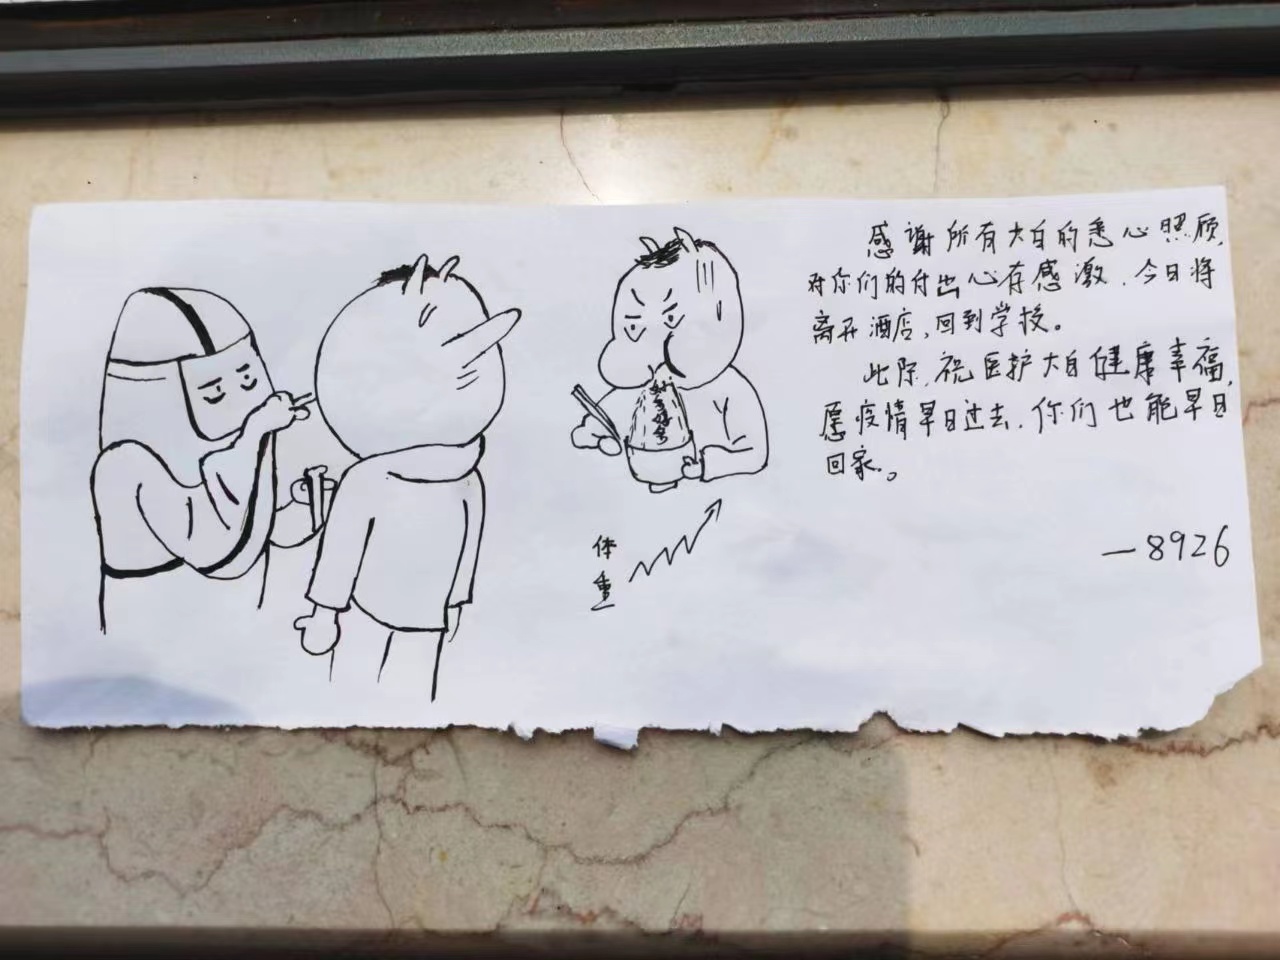 感谢所有大白的悉心照顾,
对你们的付出心存感激,今日将
离开酒店,回到学校。
此际,祝医护大白健康幸福,
愿疫情早日过去,你们也能早日
回家。
—8926
体
重